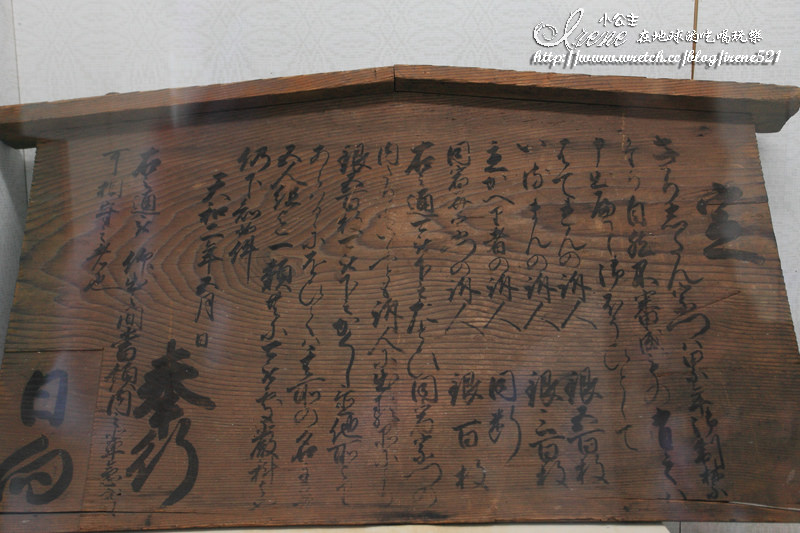 小公主
Irene 在地球的吃喝玩樂
http://www.wretch.cc/blog/irene521
定
きりしたん宗門ハ累年御制禁
たり自然不審成もの有之ハ
申出へし御ほうひとして
はてれんの訴人 銀五百枚
いるまんの訴人 銀三百枚
立かへり者の訴人 同断
同宿并宗門の訴人 銀百枚
右之通可被下之たとひ同宿宗門の
内たりといふとも訴人に出る品により
銀五百枚可被下之かくし置他所より
あらはるゝにおひてハ其所の名主并
五人組迄一類共可被處嚴科者也
仍下知如件
天和二年五月日
奉行
右之通被仰出之間領内之輩急度
可相守者也
日向